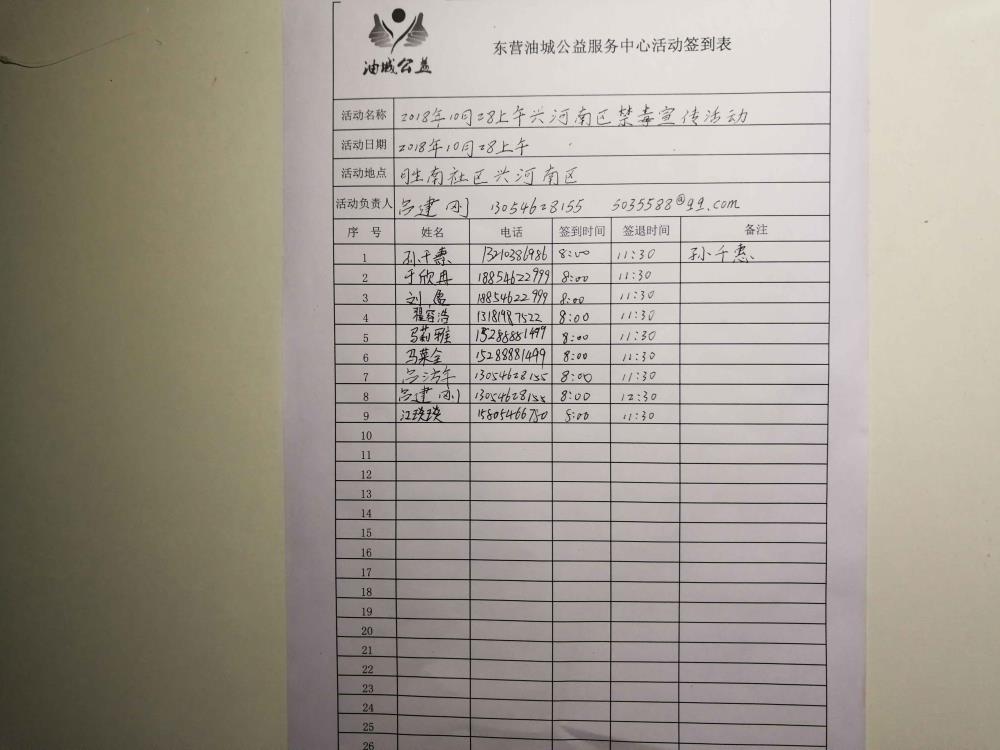 油城公益
东营油城公益服务中心活动签到表
活动名称 2018年10月28上午兴河南区禁毒宣传活动
活动日期 2018年10月28上午
活动地点 胜南社区兴河南区
活动负责人 吕建刚 13054628155 5035588@qq.com
序 号 姓名 电话 签到时间 签退时间 备注
1 孙千惠 13210386986 8:00 11:30 孙千惠
2 于欣冉 18854622999 8:00 11:30
3 刘 18854622999 8:00 11:30
4 翟容浩 13181987522 8:00 11:30
5 马莉雅 15288881499 8:00 11:30
6 马荣全 15288881499 8:00 11:30
7 吕浩年 13054628155 8:00 11:30
8 吕建刚 13054628155 8:00 12:30
9 江瑛瑛 15805466750 8:00 11:30
10
11
12
13
14
15
16
17
18
19
20
21
22
23
24
25
26